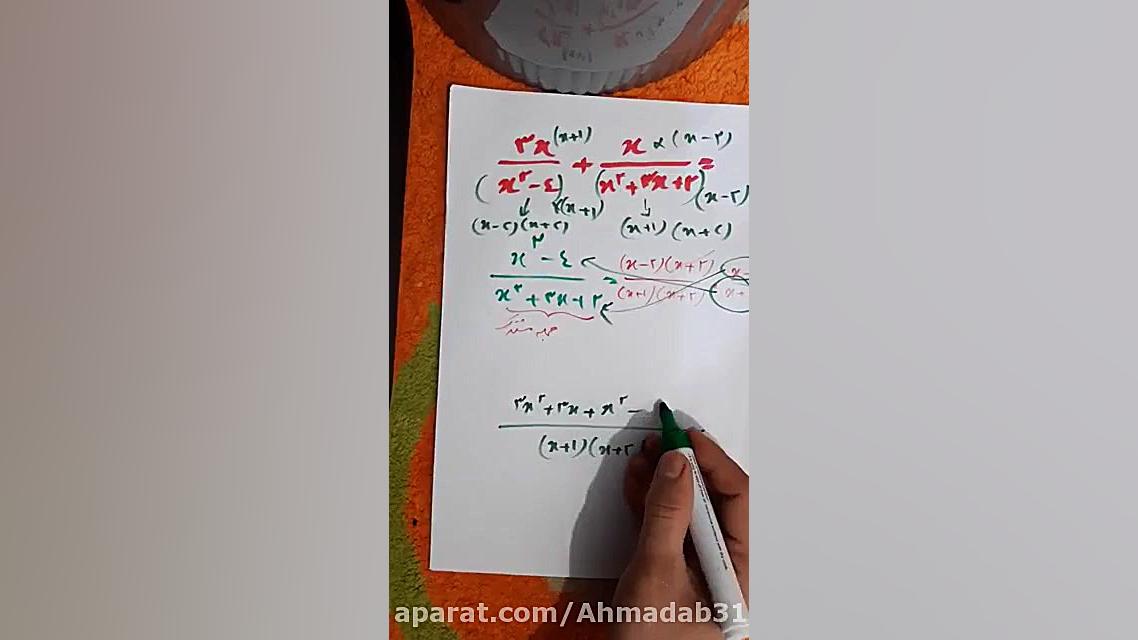 ۳x (x+1)   x × (x-۲)
+ =
(x² - ٤) (x+1)   (x² + ۳x + ۲) (x-۲)
(x-۲)(x+۲)   (x+1)(x+۲)
x² - ٤   (x-۲)(x+۲)
=
x² + ۳x + ۲   (x+1)(x+۲)
۳x² + ۳x + x² -
(x+1)(x+۲
aparat.com/Ahmadab31